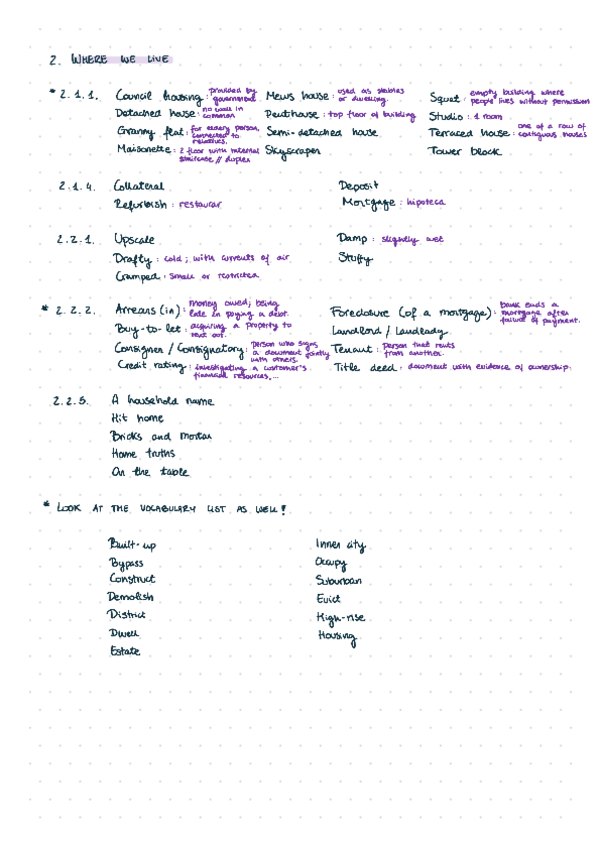 2. WHERE WE LIVE
* 2.1.1. Council housing: provided by government. Mews house: used as stables or dwelling. Squat: empty building where people lives without permission
Detached house: no wall in common Penthouse: top floor of building Studio: 1 room
Granny flat: for elderly person, connected to relatives. Semi-detached house Terraced house: one of a row of contiguous houses
Maisonette: 2 floor with internal staircase // duplex Skyscraper Tower block
2.1.4. Collateral Deposit
Refurbish: restaurar Mortgage: hipoteca
2.2.1. Upscale Damp: slightly wet
Drafty: cold; with currents of air Stuffy
Cramped: small or restricted
* 2.2.2. Arrears (in): money owed; being late in paying a debt. Foreclosure (of a mortgage): bank ends a mortgage after failure of payment.
Buy-to-let: acquiring a property to rent out. Landlord / Landlady
Consigner / Consignatory: person who signs a document jointly with others. Tenant: person that rents from another.
Credit rating: investigating a customer's financial resources,... Title deed: document with evidence of ownership.
2.2.5. A household name
Hit home
Bricks and mortar
Home truths
On the table
* LOOK AT THE VOCABULARY LIST AS WELL!
Built-up Inner city
Bypass Occupy
Construct Suburban
Demolish Evict
District High-rise
Dwell Housing
Estate